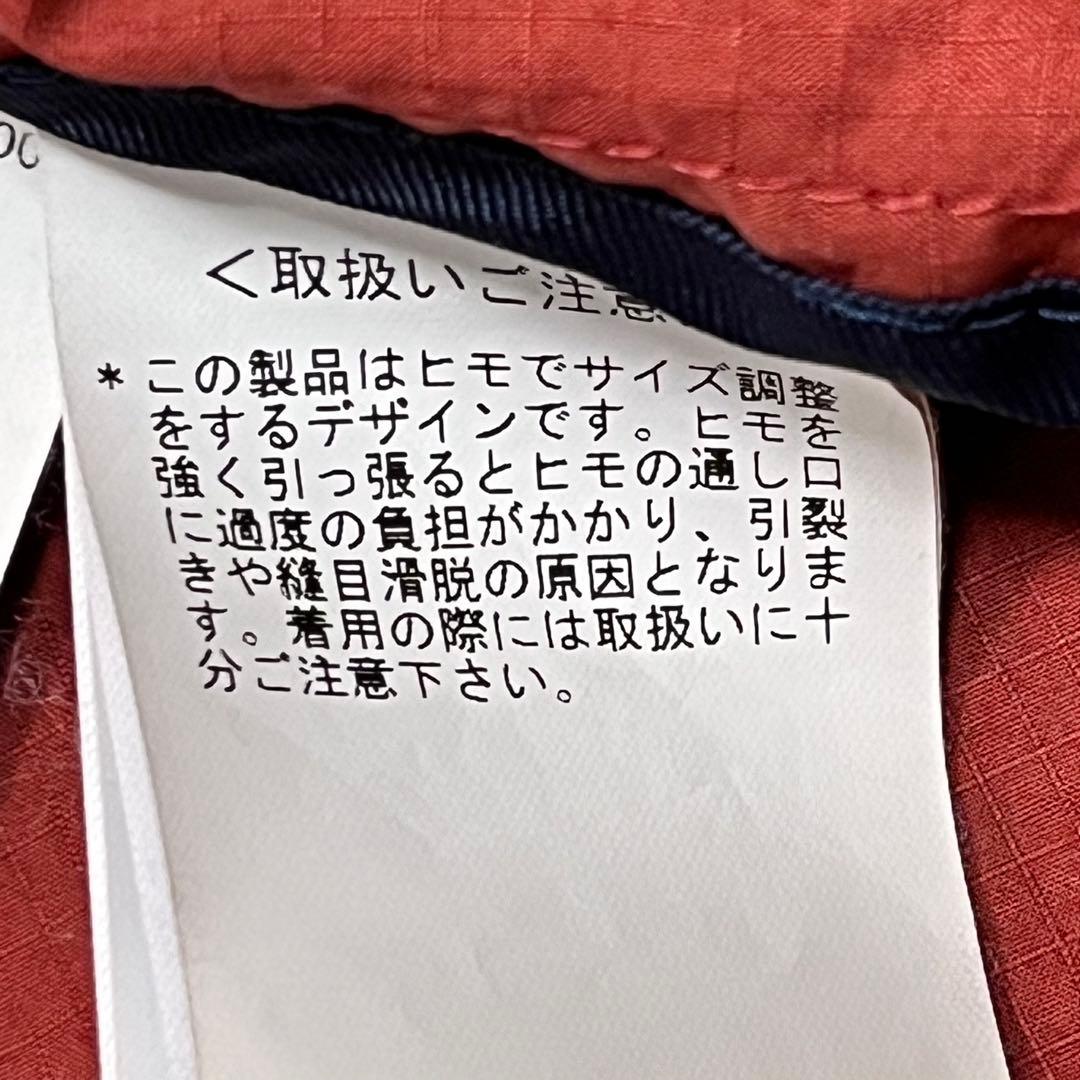 <取扱いご注意
*この製品はヒモでサイズ調整
をするデザインです。ヒモを
強く引っ張るとヒモの通し口
に過度の負担がかかり、引裂
きや縫目滑脱の原因となりま
す。着用の際には取扱いに十
分ご注意下さい。